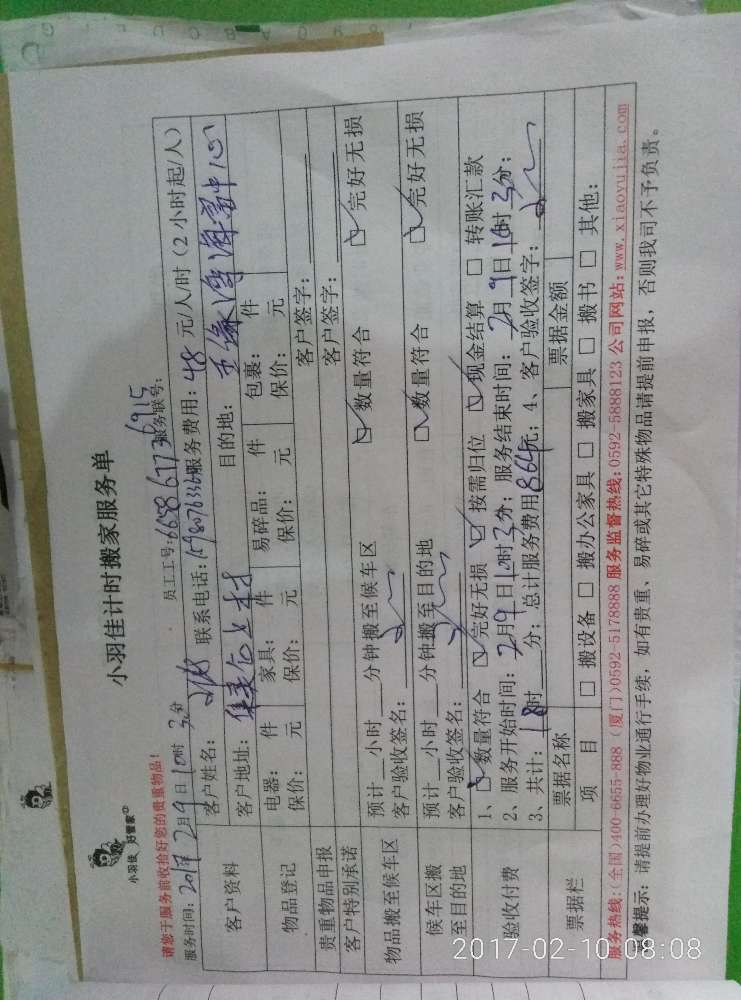 小羽佳 好管家
小羽佳计时搬家服务单
请您于服务前收拾好您的贵重物品!
服务时间: 2017年2月9日10时30分 员工工号: 服务联号:
客户资料 客户姓名: 联系电话: 服务费用: 48 元/人/时 (2小时起/人)
客户地址: 目的地: 五缘湾海富中心
物品登记 电器: 件 家具: 件 易碎品: 件 包裹: 件
保价: 元 保价: 元 保价: 元 保价: 元
贵重物品申报 客户签字:
客户特别承诺 客户签字:
物品搬至候车区 预计 小时 分钟搬至候车区 数量符合 完好无损
客户验收签名:
候车区搬至目的地 预计 小时 分钟搬至目的地 数量符合 完好无损
客户验收签名:
验收付费 1、 数量符合 完好无损 按需归位 现金结算 转账汇款
2、服务开始时间: 2月9日 时 分; 服务结束时间: 2月9日 时 分;
3、共计: 18时 分; 总计服务费用864元; 4、客户验收签字:
票据栏 票据名称 票据金额
项目 搬设备 搬办公家具 搬家具 搬书 其他:
服务热线:(全国)400-6655-888 (厦门)0592-5178888 服务监督热线:0592-5888123 公司网站:www.xiaoyujia.com
温馨提示: 请提前办理好物业通行手续, 如有贵重、易碎或其它特殊物品请提前申报, 否则我司不予负责。
2017-02-10 08:08